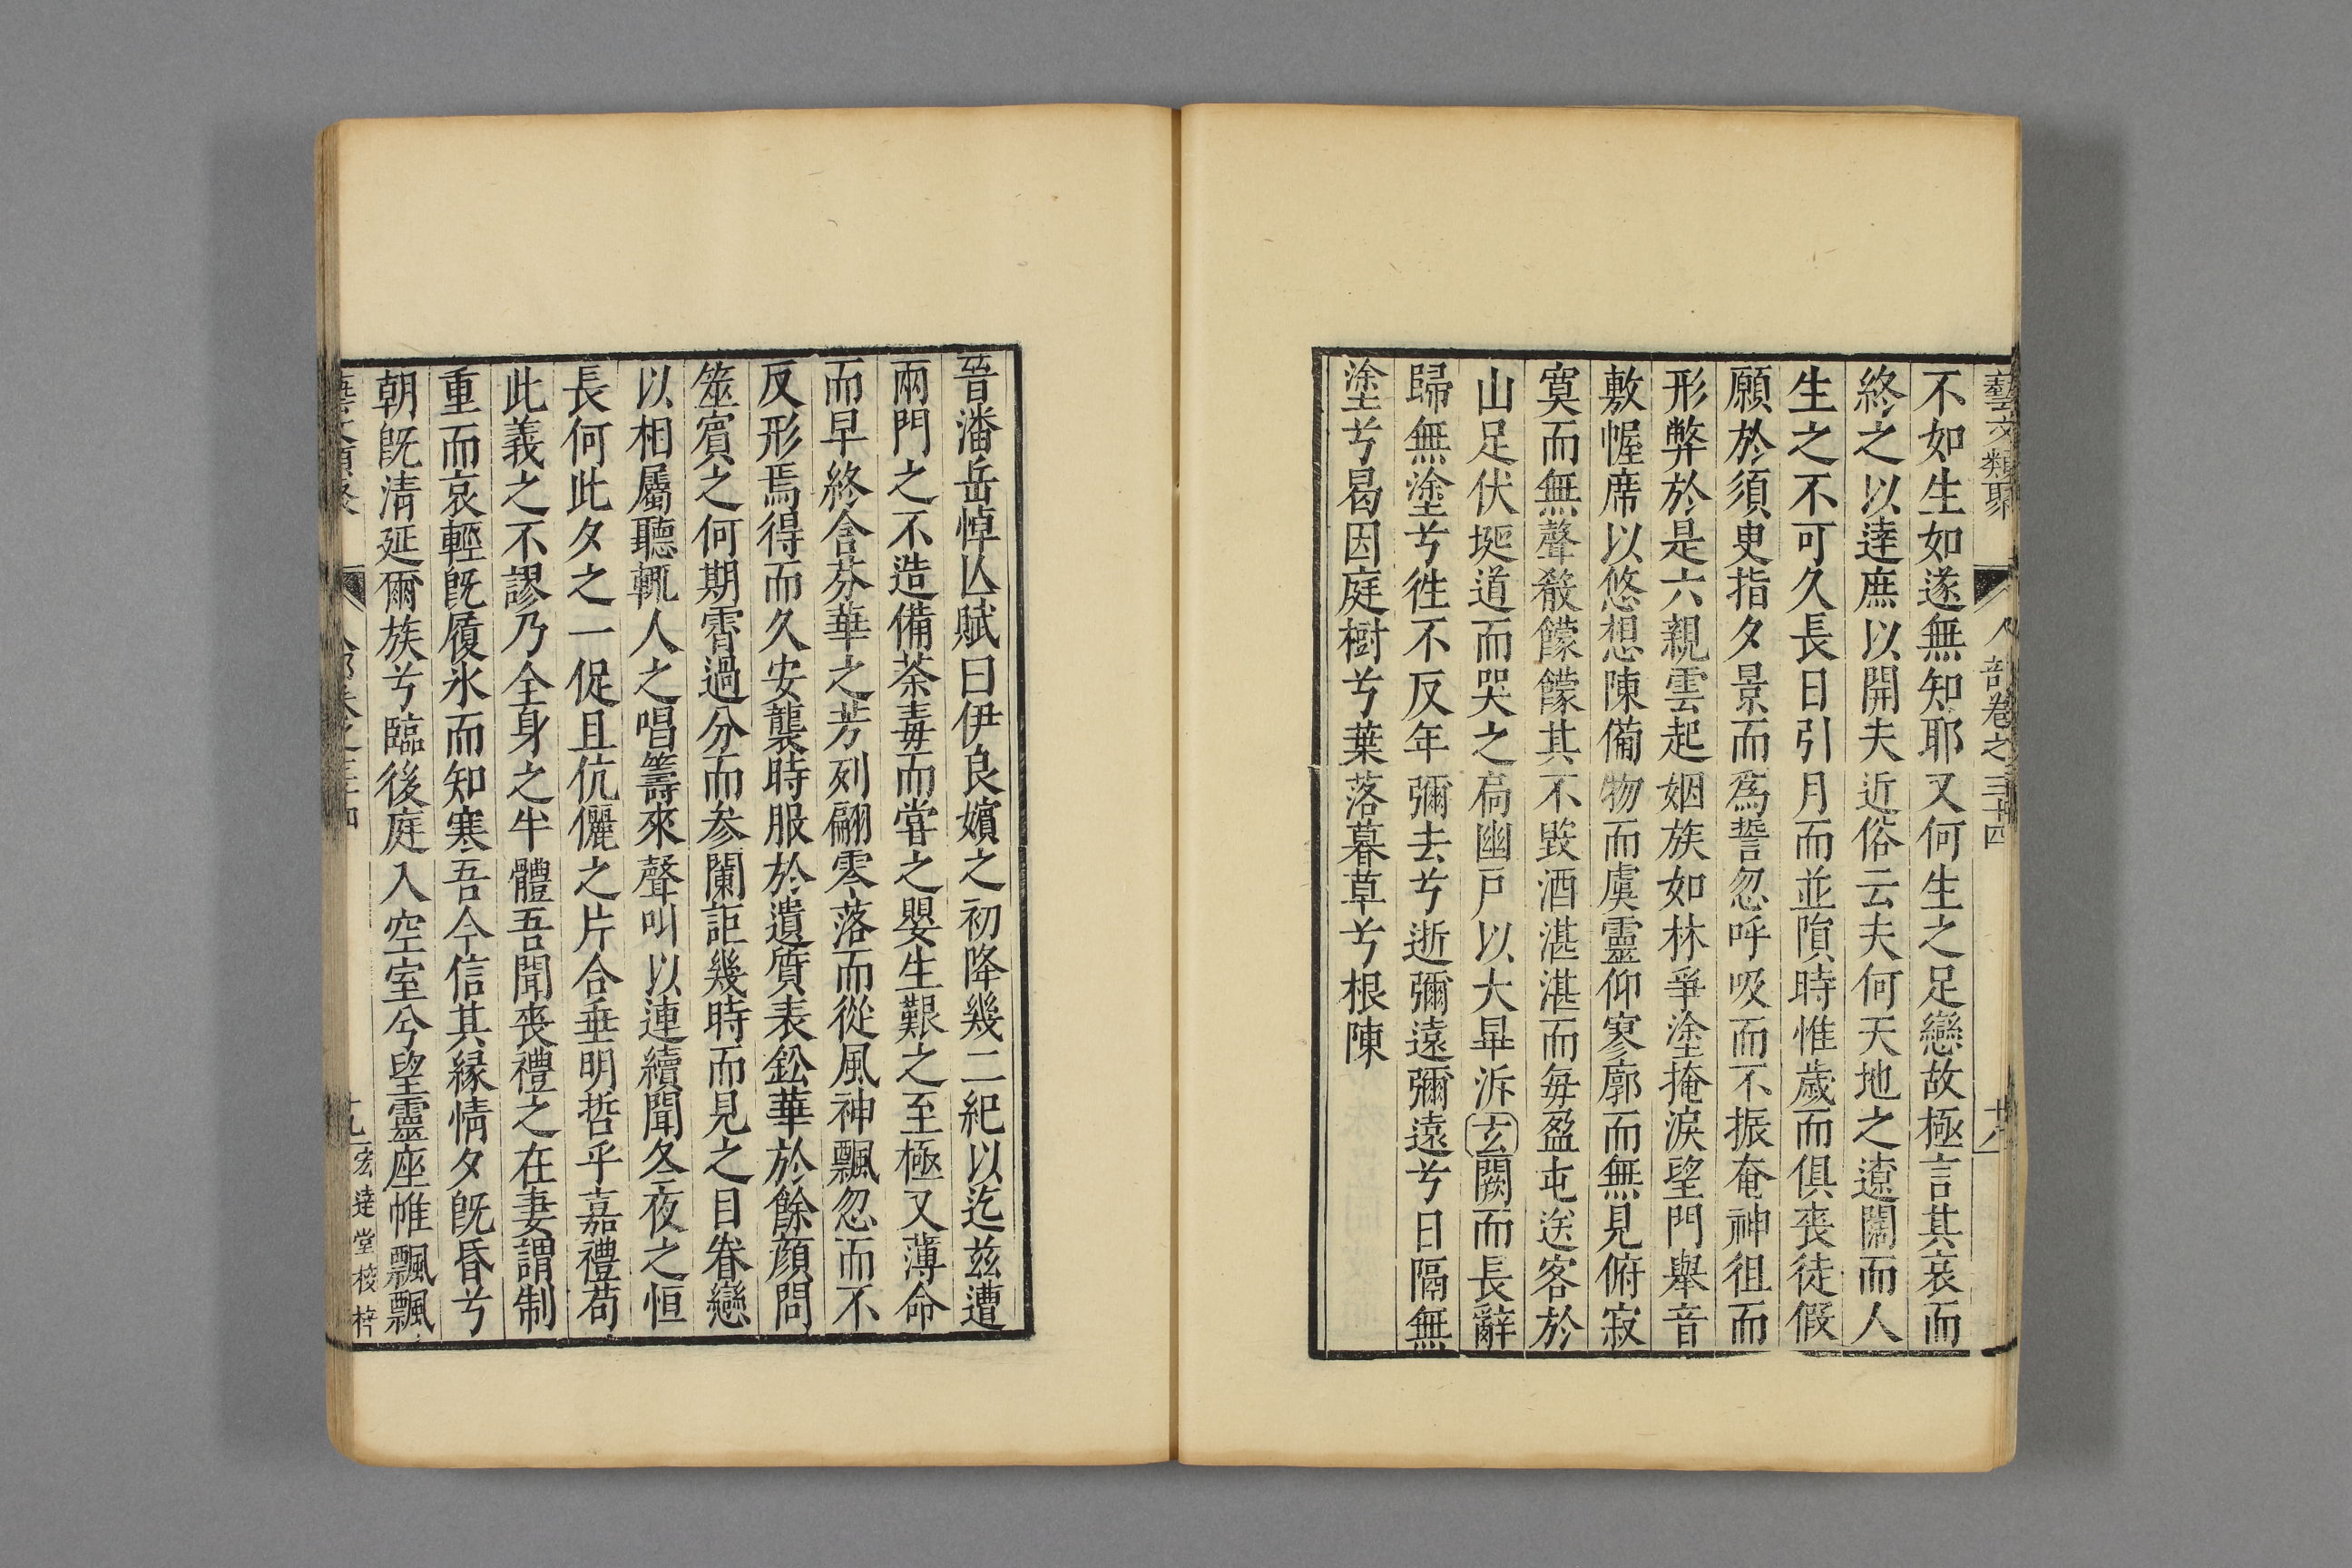 藝文類聚 人部卷之三十四 十八
不如生如遂無知耶又何生之足戀故極言其哀而
終之以逹庶以開夫近俗云夫何天地之遼闊而人
生之不可久長日引月而並隕時惟歲而俱喪徒假
願於須臾指夕景而爲誓忽呼吸而不振奄神徂而
形弊於是六親雲起姻族如林爭塗掩淚望門舉音
敷幄席以悠想陳備物而虞靈仰寥廓而無見俯寂
寞而無聲殽饛饛其不毀酒湛湛而每盈屯送客於
山足伏埏道而哭之扃幽戸以大畢泝玄闕而長辭
歸無塗兮徃不反年彌去兮逝彌遠彌遠兮日隔無
塗兮曷因庭樹兮葉落暮草兮根陳
晉潘岳悼亾賦曰伊良嬪之初降幾二紀以迄兹遭
兩門之不造備荼毒而甞之嬰生艱之至極又薄命
而早終含芬華之芳列翩零落而從風神飄忽而不
反形焉得而久安襲時服於遺質表鈆華於餘顔問
筮賓之何期霄過分而参闌詎幾時而見之目眷戀
以相屬聽輒人之唱籌來聲叫以連續聞冬夜之恒
長何此夕之一促且伉儷之片合垂明哲乎嘉禮苟
此義之不謬乃全身之半體吾聞喪禮之在妻謂制
重而哀輕旣履氷而知寒吾今信其縁情夕旣昏兮
朝旣清延爾族兮臨後庭入空室兮望靈座帷飄飄
九 宏逹堂校栞